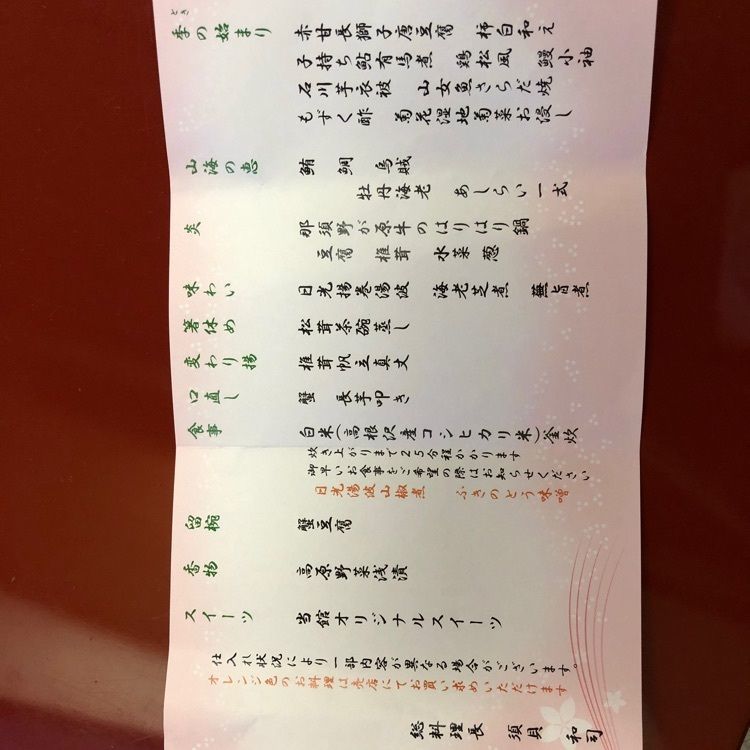 季の始まり 赤甘長獅子唐豆腐 柿白和え
とき
子持ち鮎有馬煮 鶏松風 鰻小袖
石川芋衣被 山女魚さらだ焼
もずく酢 菊花湿地菊菜お浸し
山海の恵 鮪 鯛 烏賊
牡丹海老 あしらい一式
炎 那須野が原牛のはりはり鍋
豆腐 椎茸 水菜 葱
味わい 日光揚巻湯波 海老芝煮 蕪旨煮
箸休め 松茸茶碗蒸し
変わり揚 椎茸帆立真丈
口直し 蟹 長芋叩き
食事 白米(高根沢産コシヒカリ米)釜炊
炊き上がりまで25分程かかります
御早いお食事をご希望の際はお知らせください
日光湯波山椒煮 ふきのとう味噌
留椀 蟹豆腐
香物 高原野菜浅漬
スイーツ 当館オリジナルスイーツ
仕入れ状況により一部内容が異なる場合がございます。
オレンジ色のお料理は売店にてお買い求めいただけます
総料理長 須貝 和司